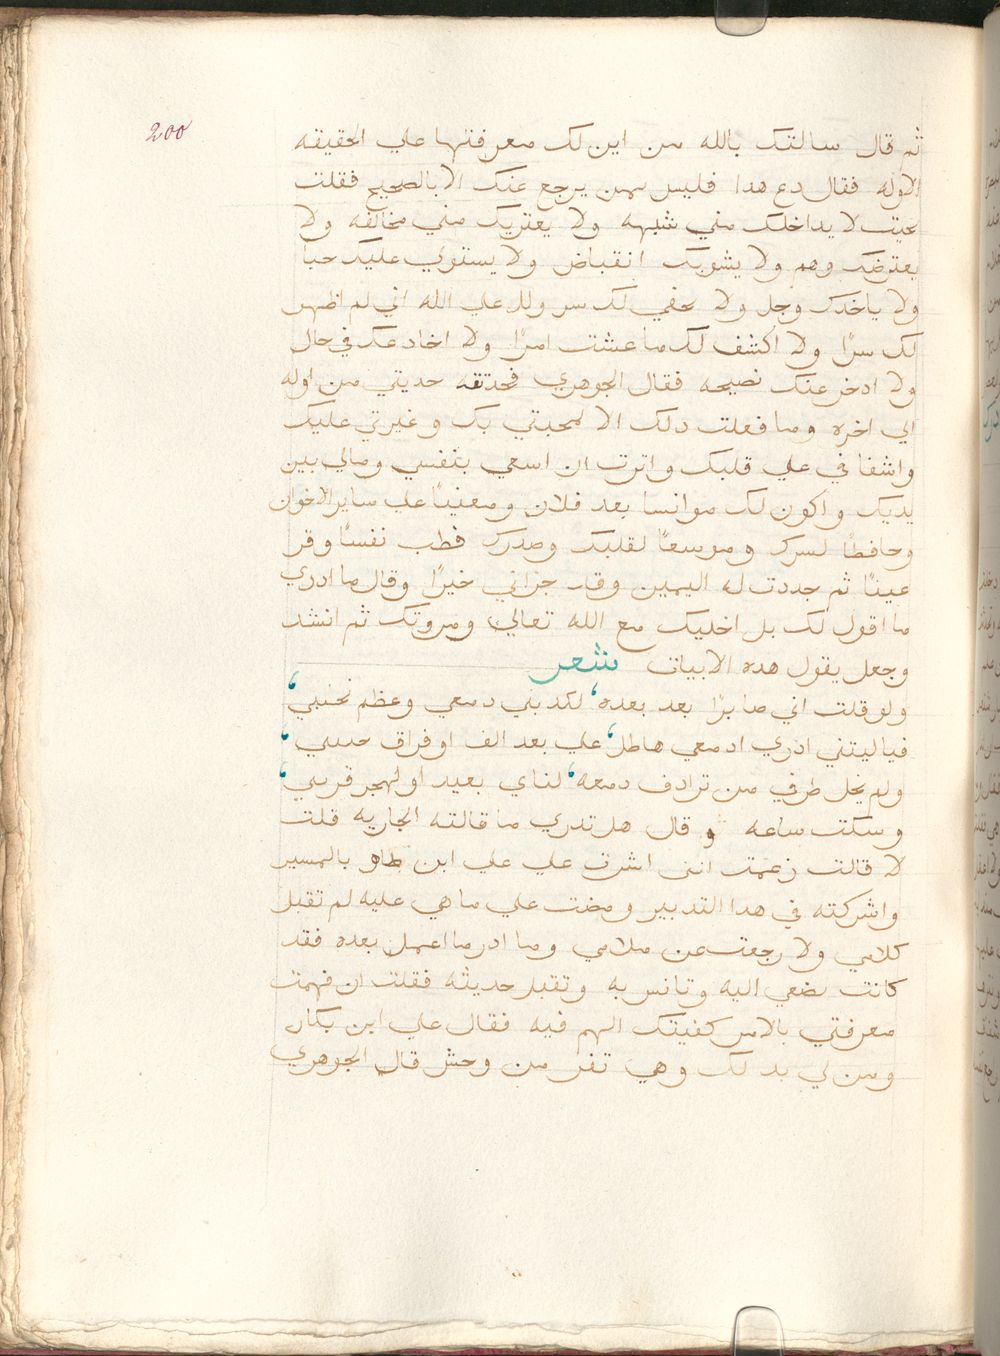 200
ثم قال سالتك بالله من اين لك معرفتها علي الحقيقه
الاوله فقال دع هدا فليس بمن يرجع عنك الا بالصحيح فقلت
بحيت لا يداخلك مني شبهه ولا يعتريك مني مخالفه ولا
يعترضك وهم ولا يشوبك انقباض ولا يستوي عليك حبا
ولا ياخدك وجل ولا يخفي لك سر ولك علي الله اني لم اظهر
لك سرًا ولا اكشف لك ما عشت امرًا ولا اخادعك في حال
ولا ادخر عنك نصيحه فقال الجوهري فحدتته حديتي من اوله
الي اخره وما فعلت دلك الا لمحبتي بك وغيرتي عليك
واشفاقي علي قلبك واترت ان اسعي بنفسي ومالي بين
يديك واكون لك موانسا بعد فلان ومعنيًا علي ساير الاخوان
وحافظًا لسرك وموسعًا لقلبك وصدرك فطب نفسًا وقر
عينًا ثم جددت له اليمين وقد جزاني خيرًا وقال ما ادري
ما اقول لك بل اخليك مع الله تعالي ومروتك ثم انشد
وجعل يقول هده الابيات شعر
ولو قلت اني صابرًا بعد بعده، لكدبني دمعي وعظم نحيبي،
فياليتني ادري ادمعي هاطل، علي بعد الف او فراق حبيبي،
ولم يخل طرفي من ترادف دمعه، لناي بعيد او لهجر قريبي،
وسكت ساعه و قال هل تدري ما قالته الجاريه قلت
لا قالت زعمت انني اشرت علي علي ابن طاهر بالمسير
واشركته في هدا التدبير ومضت علي ما هي عليه لم تقبل
كلامي ولا رجعت عن ملامي وما ادر ما اعمل بعده فقد
كانت تصغي اليه وتانس به وتقبل حديثه فقلت ان فهمت
معرفتي بالامر كفيتك الهم فيه فقال علي ابن بكار
ومن لي بدلك وهي تفر من وحش قال الجوهري